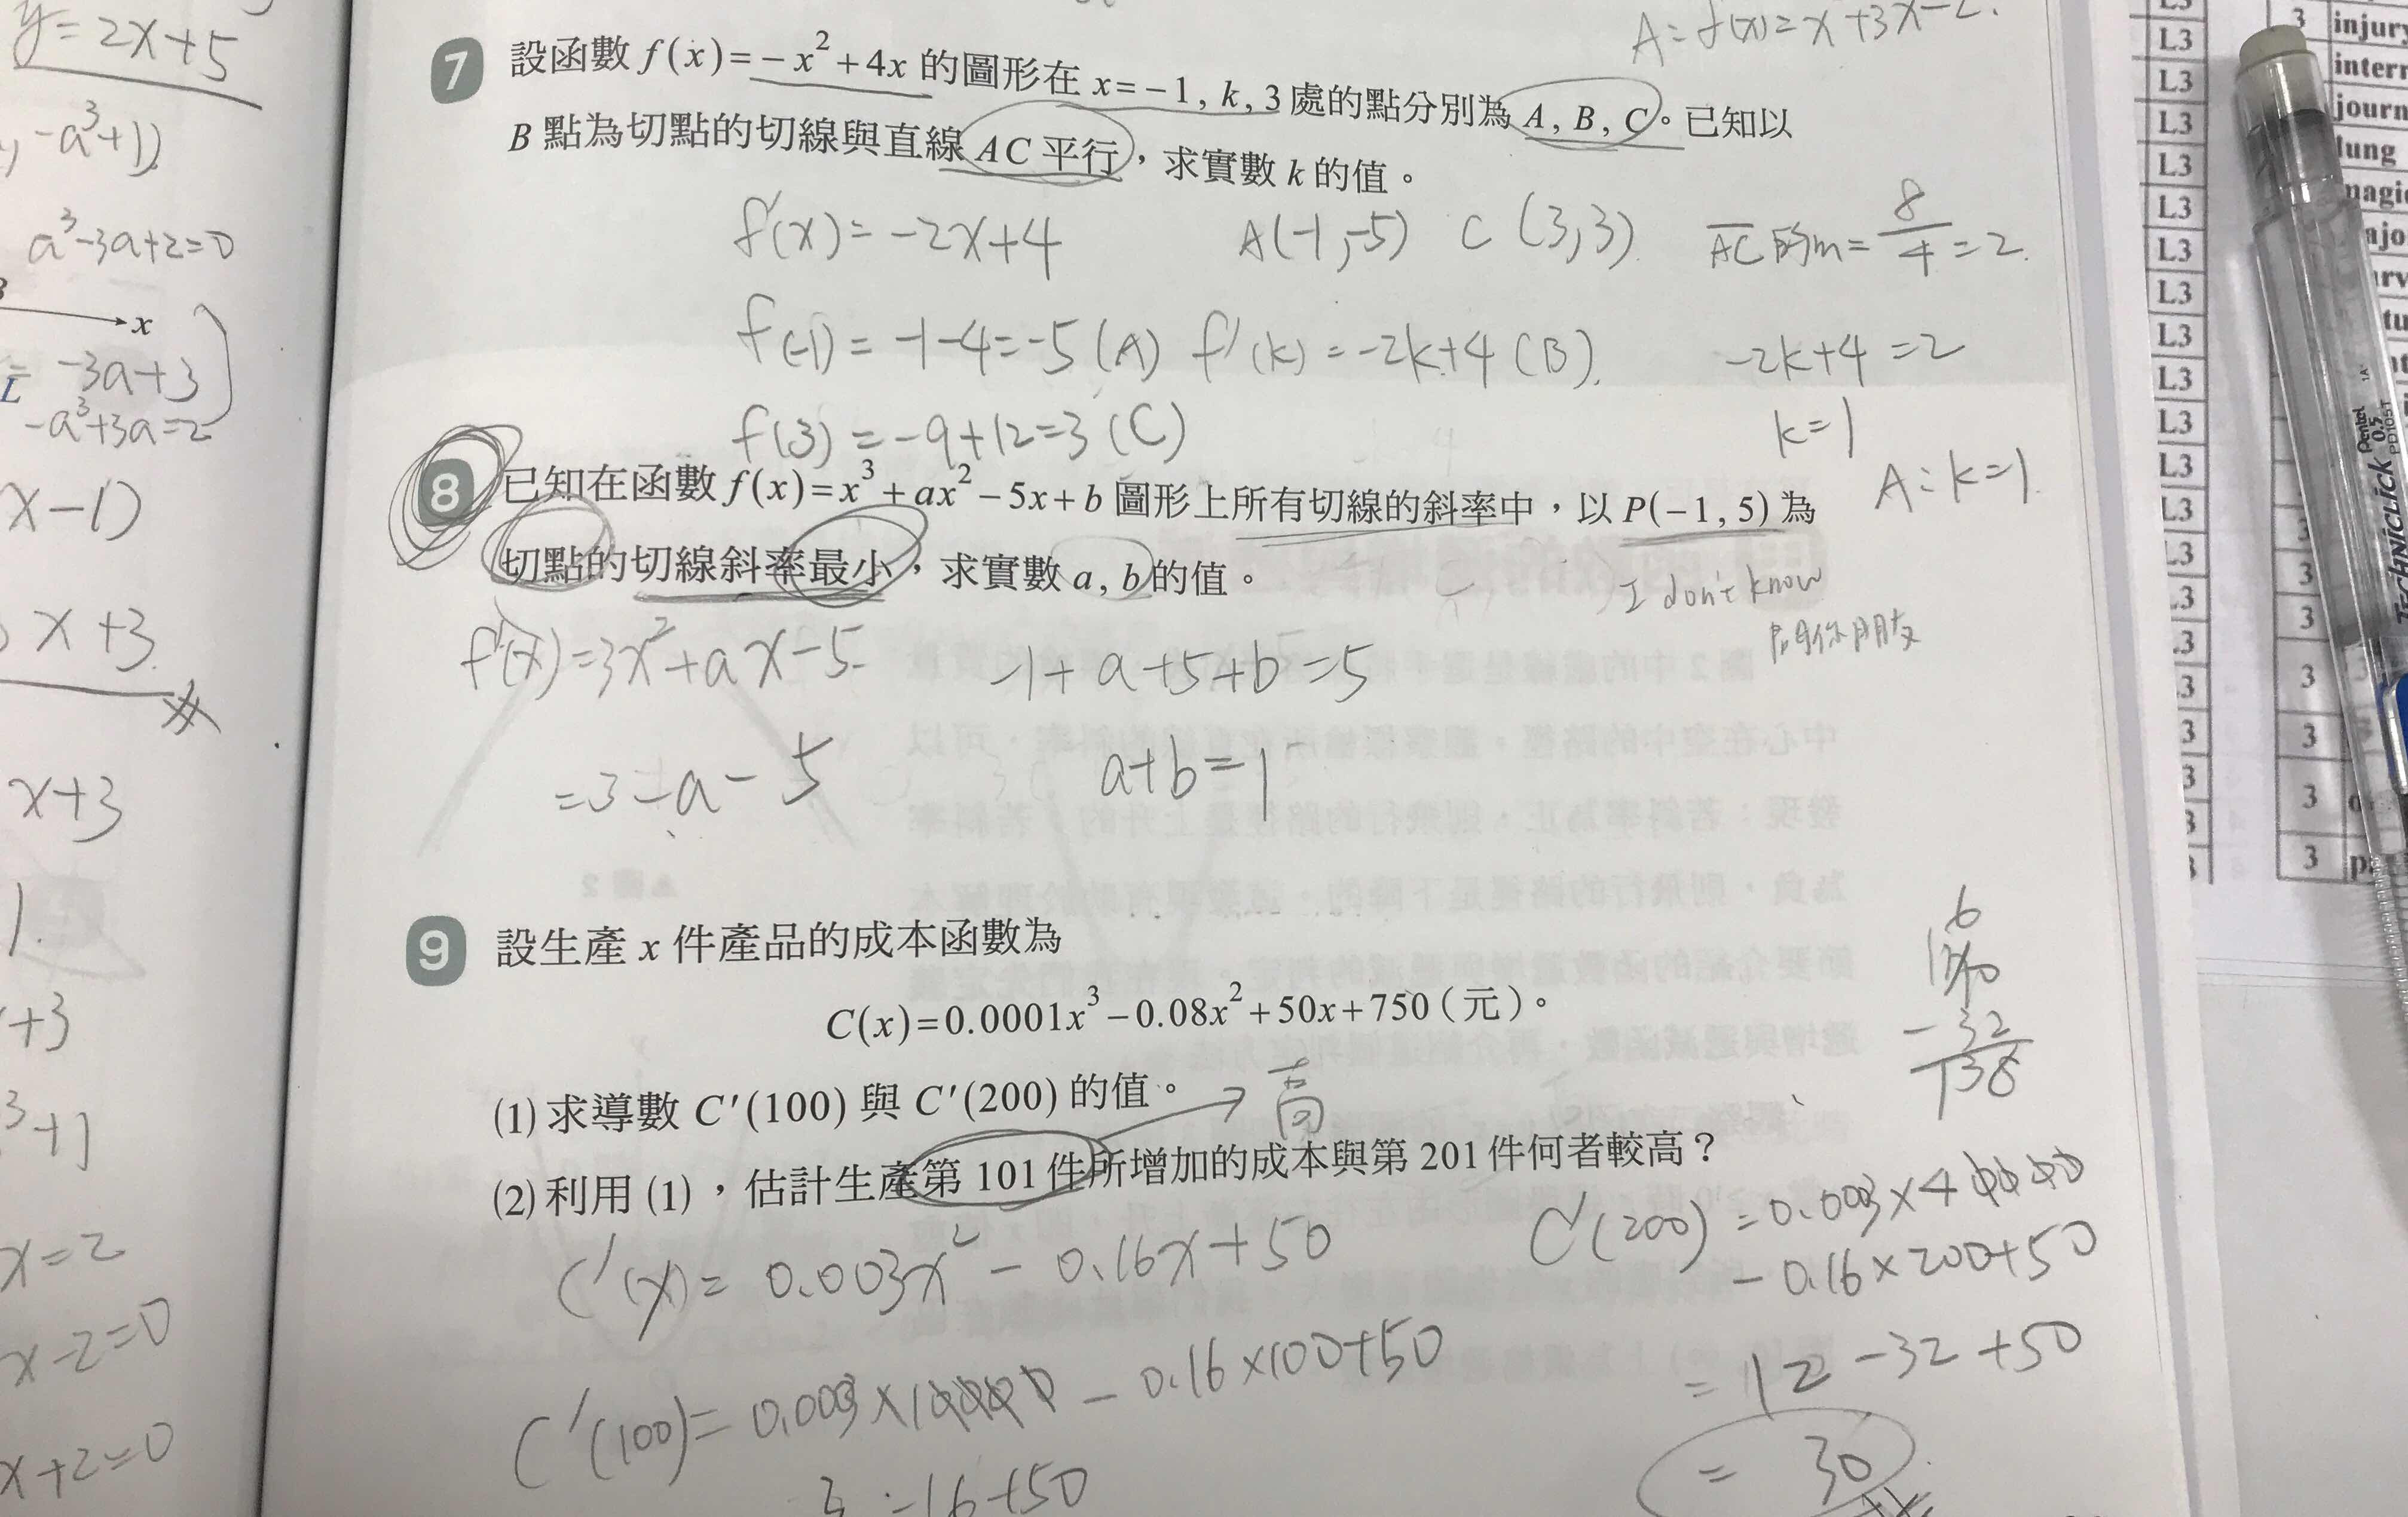 y=2x+5
-a³+1)
a³-3a+2=0
x
-3a+3
-a³+3a=2
x-1)
x+3
x+3
1.
+3
³+1
x=2
x-2=0
x+2=0
A=f(x)=x+3x-2.
7 設函數 f(x)=-x²+4x 的圖形在 x=-1, k, 3 處的點分別為 A, B, C。已知以
B 點為切點的切線與直線 AC 平行，求實數 k 的值。
f'(x)=-2x+4 A(-1,-5) C(3,3) AC的m=8/4=2.
f(-1)=-1-4=-5(A) f'(k)=-2k+4(B). -2k+4=2
f(3)=-9+12=3(C) k=1
A:k=1.
8 已知在函數 f(x)=x³+ax²-5x+b 圖形上所有切線的斜率中，以 P(-1, 5) 為
切點的切線斜率最小，求實數 a, b 的值。
I don't know
問你朋友
f'(x)=3x²+ax-5 -1+a+5+b=5
=3-a-5 a+b=1
9 設生產 x 件產品的成本函數為
C(x)=0.0001x³-0.08x²+50x+750（元）。
6
-32
138
(1) 求導數 C'(100) 與 C'(200) 的值。
高
(2) 利用 (1)，估計生產第 101 件所增加的成本與第 201 件何者較高？
C'(x)=0.003x²-0.16x+50
C'(200)=0.003×40000
-0.16×200+50
=12-32+50
=30
C'(100)=0.003×10000-0.16×100+50
3-16+50
L3
L3
L3
L3
L3
L3
L3
L3
L3
L3
L3
L3
L3
3 injury
intern
journ
lung
magic
3
3
3
3
3
Pentel
0.5
PD105T
TECHNICLICK